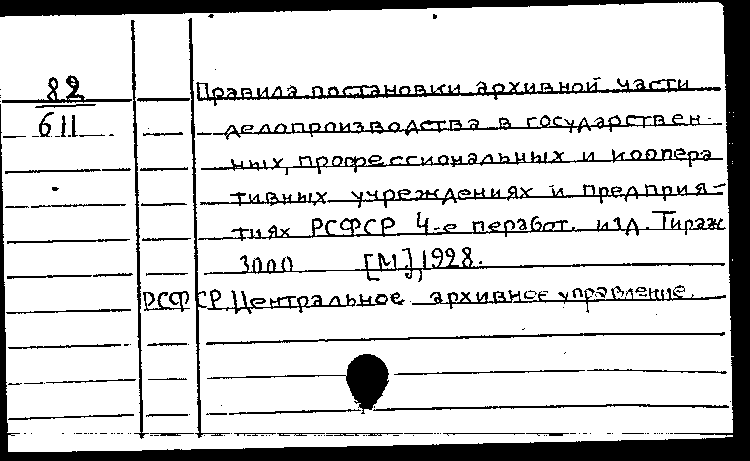 82
611
Правила постановки архивной части
делопроизводства в государствен-
ных, профессиональных и коопера
тивных учреждениях и предприя-
тиях РСФСР 4-е перабот. изд. Тираж
3000 [М], 1928.
РСФСР. Центральное архивное управление.